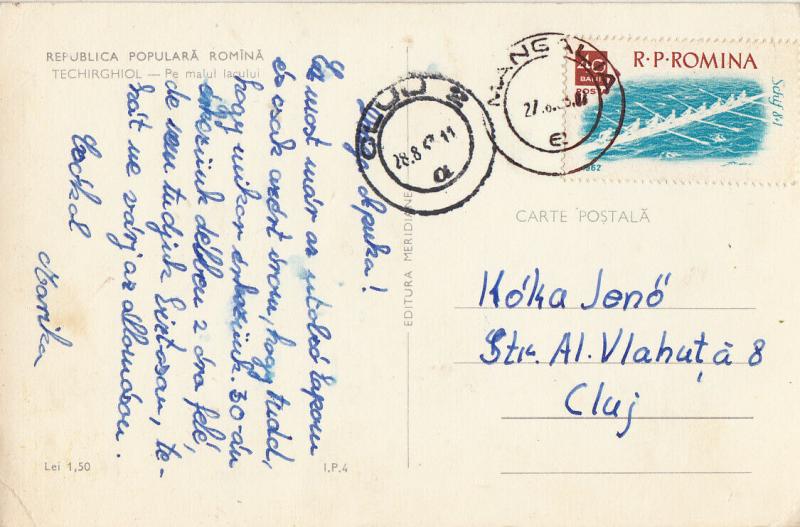 REPUBLICA POPULARĂ ROMÎNĂ
TECHIRGHIOL — Pe malul lacului
Apuka!
Ez most már az utolsó lapom
és csak azért írom, hogy tudd,
hogy mikor érkezünk. 30-án
érkezünk délben 2 óra felé,
de nem tudjuk biztosan, te-
hát ne várj az állomáson.
Csókol
Marika
Lei 1,50
I.P.4
EDITURA MERIDIANE
CLUJ 2
28.8.63.11
MANGALIA
27.8.63.
e
40
BANI
POSTA
R·P·ROMINA
Schif 8+1
1962
CARTE POȘTALĂ
Kóka Jenő
Str. Al. Vlahuță 8
Cluj